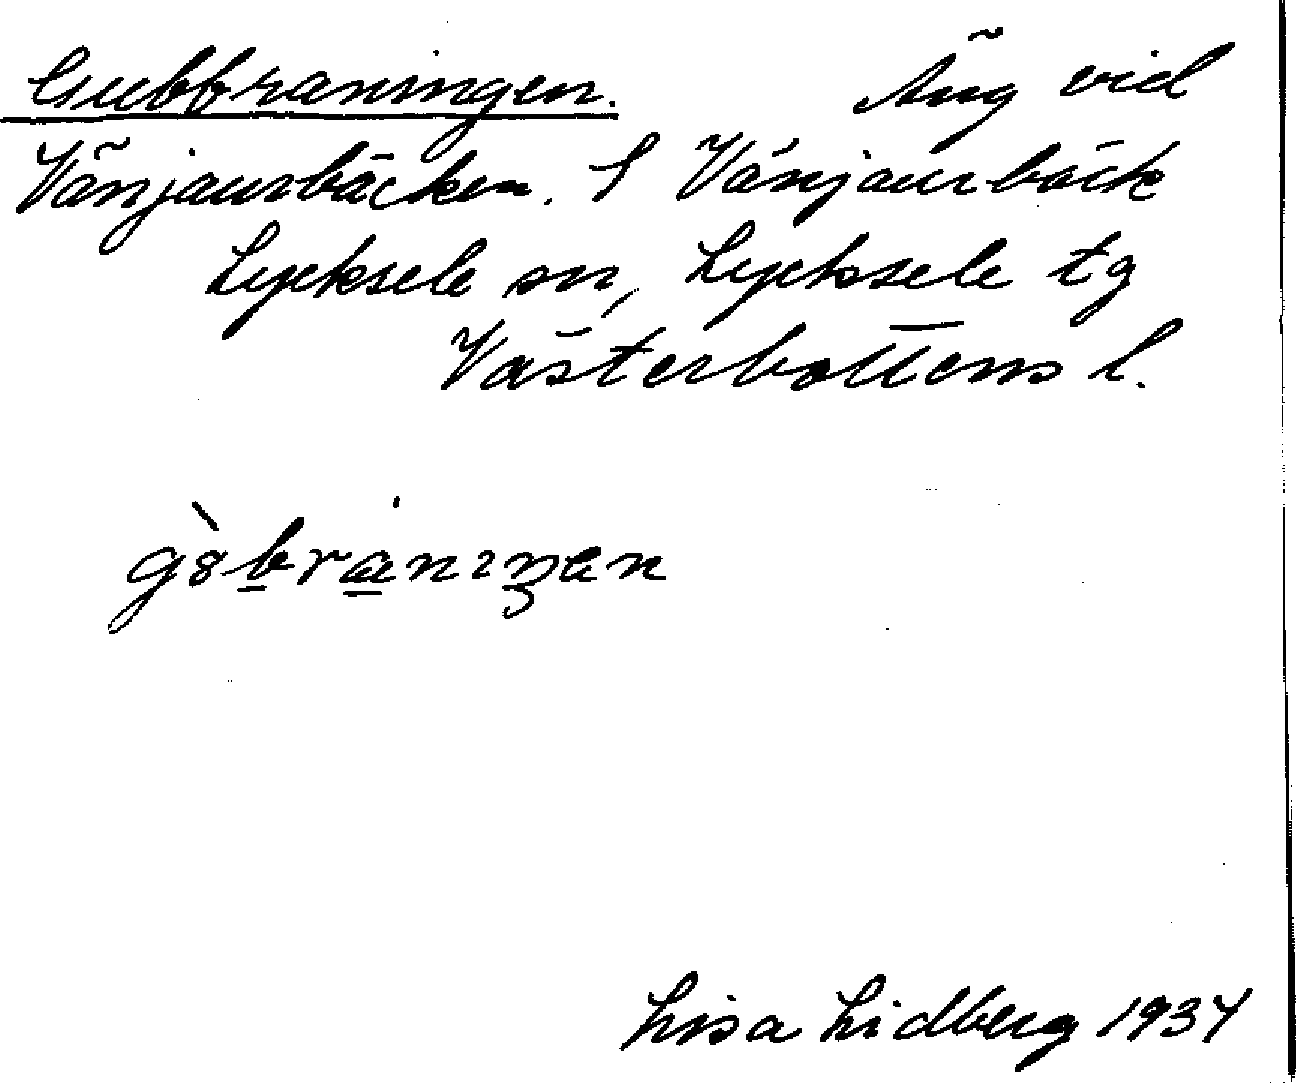 Gubbraningen. Äng vid
Vänjaurbäcken. S Vänjaurbäck
Lycksele sn, Lycksele tg
Västerbottens l.
Lisa Lidberg 1937